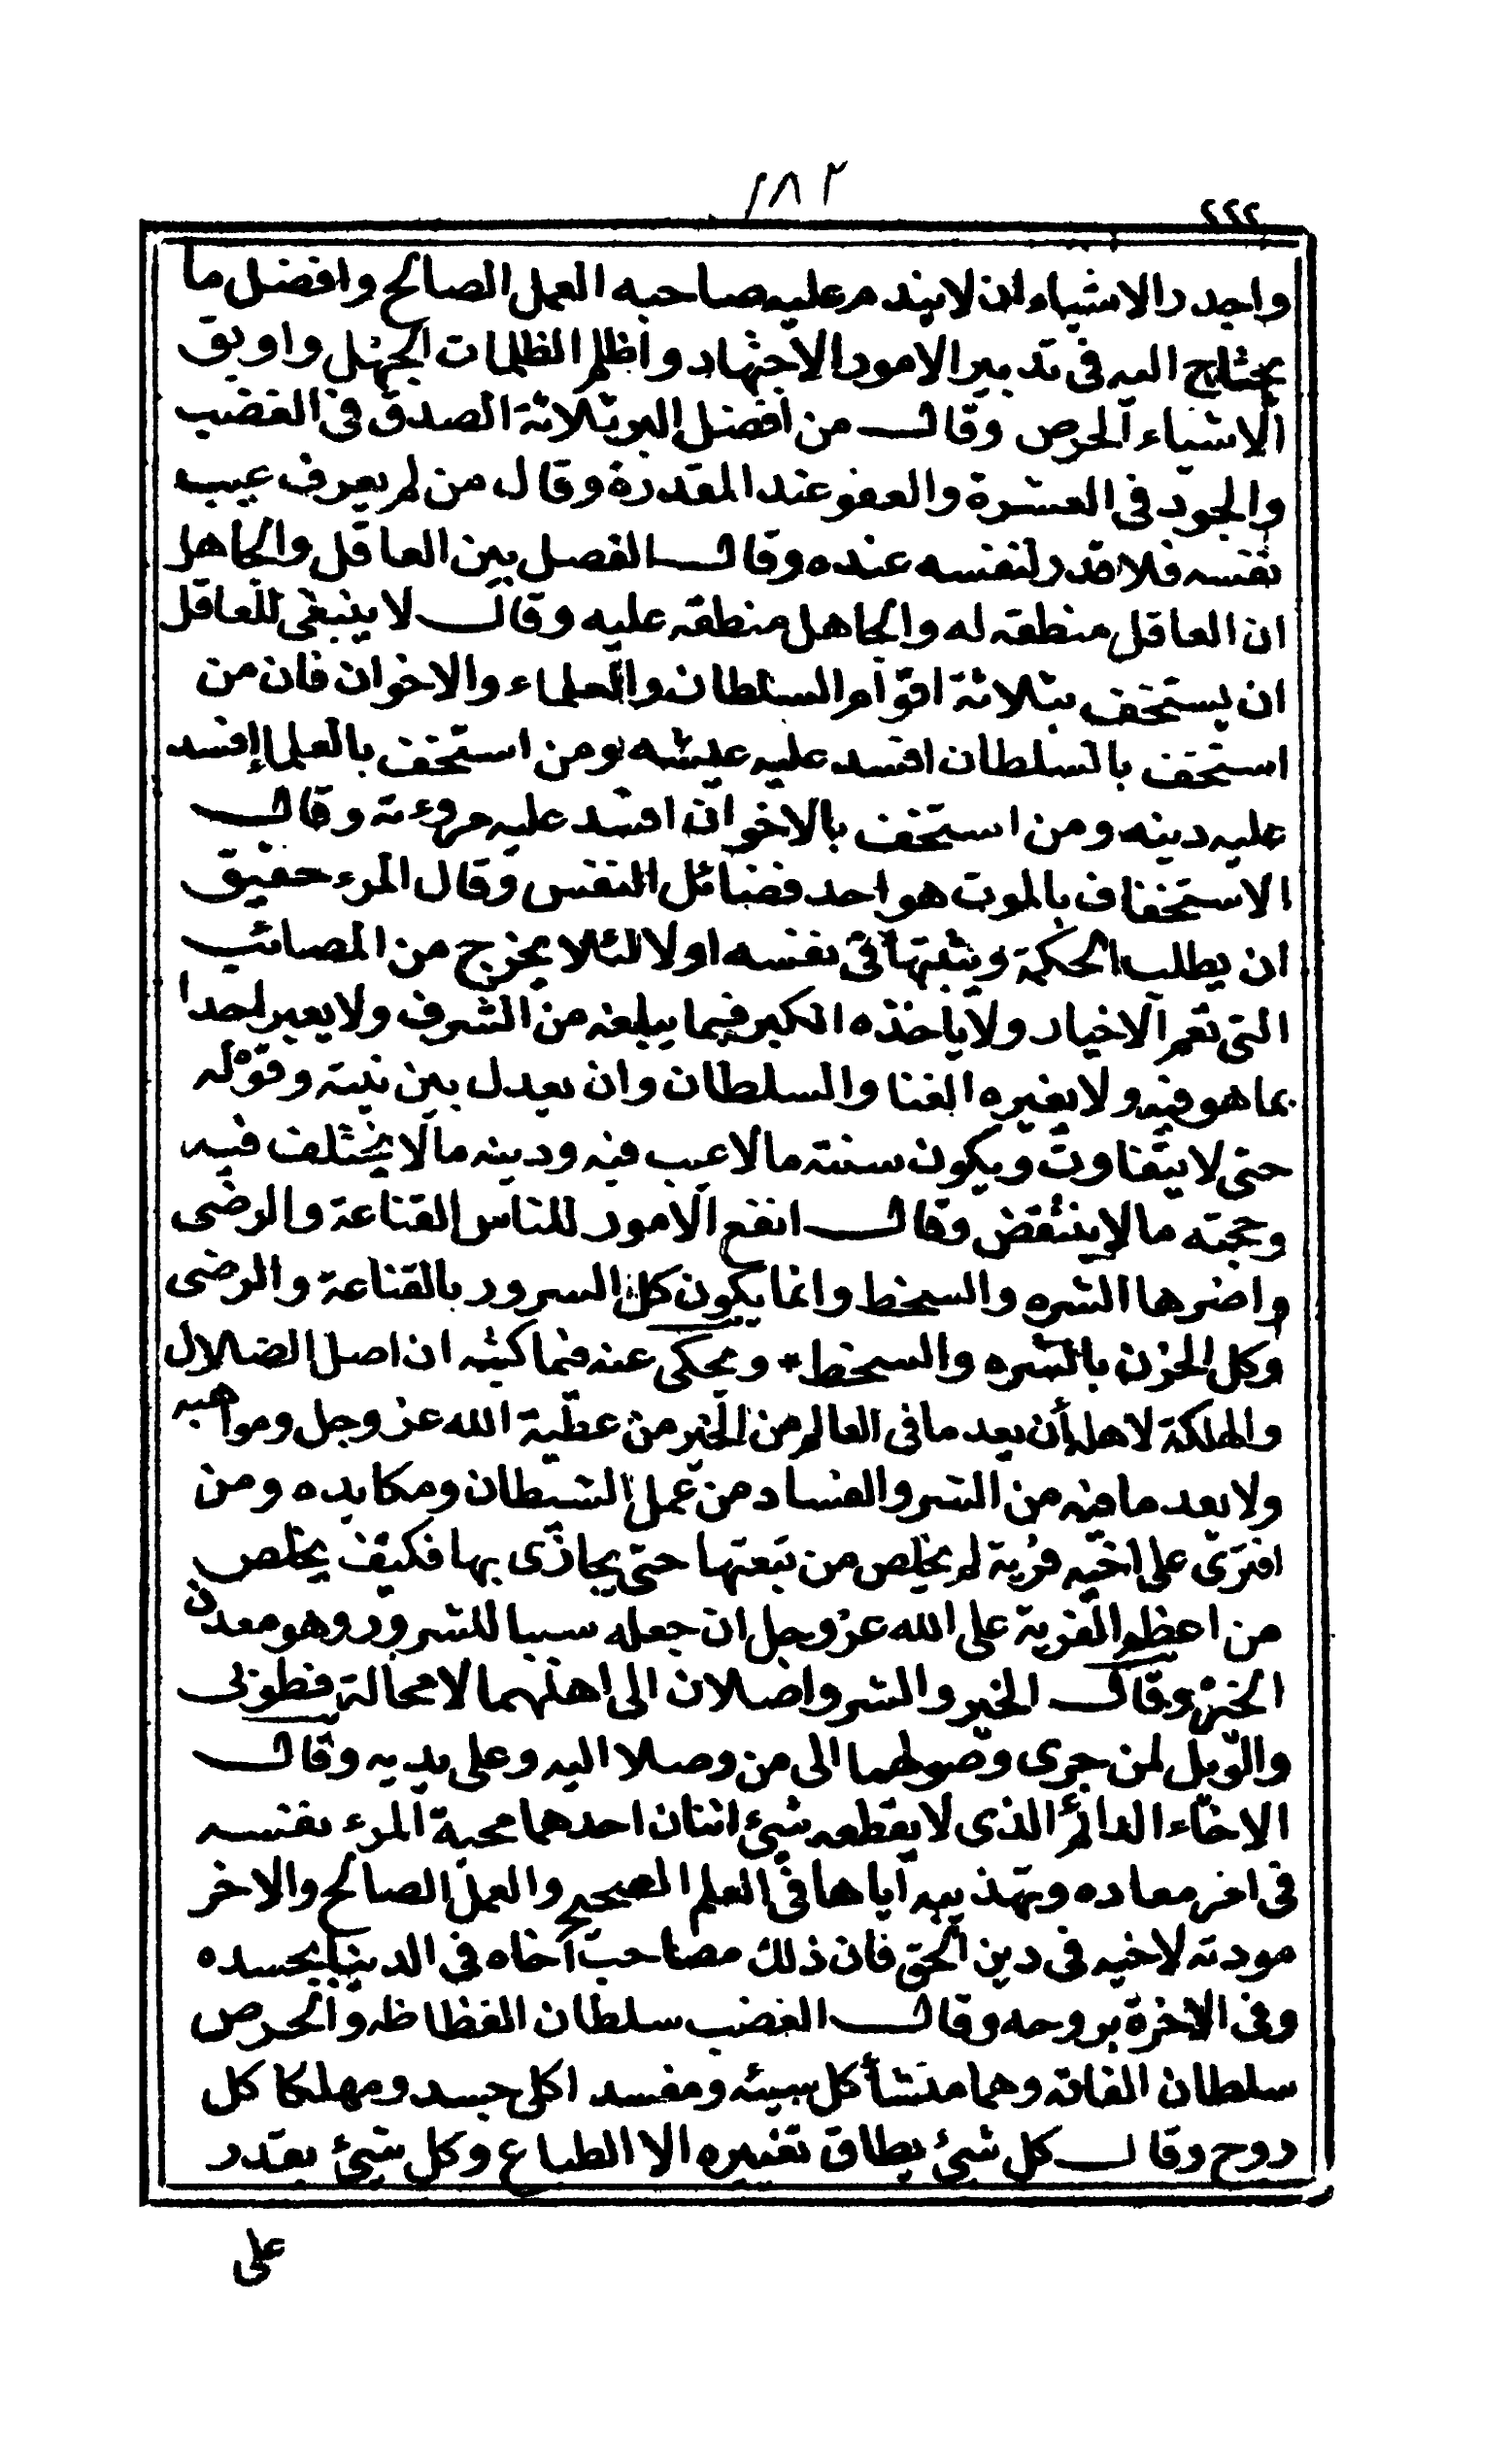 ١٨٢
واجدر الاشياء ان لا يندم عليه صاحبه العمل الصالح وافضل ما
يحتاج اليه فى تدبير الامور الاجتهاد واظلم الظلمات الجهل واوبق
الاشياء الحرص وقال من افضل البر ثلاثة الصدق فى الغضب
والجود فى العسرة والعفو عند المقدرة وقال من لم يعرف عيب
نفسه فلا قدر لنفسه عنده وقال الفصل بين العاقل والجاهل
ان العاقل منطقه له والجاهل منطقه عليه وقال لا ينبغى للعاقل
ان يستخف بثلاثة اقوام السلطان والعلماء والاخوان فان من
استخف بالسلطان افسد عليه عيشه ومن استخف بالعلما افسد
عليه دينه ومن استخف بالاخوان افسد عليه مروءته وقال
الاستخفاف بالموت هو احد فضائل النفس وقال المرء حقيق
ان يطلب الحكمة ويثبتها فى نفسه اولا لئلا يجزع من المصائب
التى تعم الاخيار ولا ياخذه الكبر فيما يبلغه من الشرف ولا يعير احدا
بما هو فيه ولا يغيره الغنا والسلطان وان يعدل بين نيته وقوله
حتى لا يتفاوت ويكون سنته مالا عيب فيه ودينه مالا يختلف فيه
وحجته مالا ينتقض وقال انفع الامور للناس القناعة والرضى
واضرها الشره والسخط وانما يكون كل السرور بالقناعة والرضى
وكل الحزن بالشره والسخط * ويحكى عنه فيما كتبه ان اصل الضلال
والهلكة لاهله أن يعد ما فى العالم من الخير من عطية الله عز وجل ومواهبه
ولا يعد ما فيه من الشر والفساد من عمل الشيطان ومكايده ومن
افترى على اخيه فرية لم يخلص من تبعتها حتى يجازى بها فكيف يخلص
من اعظم الفرية على الله عز وجل ان جعله سببا للشرور وهو معدن
الخير وقال الخير والشر واصلان الى اهلهما لا محالة فطوبى
والويل لمن جرى وصولهما الى من وصلا اليه وعلى يديه وقال
الاخاء الدائم الذى لا يقطعه شئ اثنان احدهما محبة المرء نفسه
فى امر معاده وتهذيبه اياها فى العلم الصحيح والعمل الصالح والاخر
مودته لاخيه فى دين الحق فان ذلك مصاحب اخاه فى الدنيا بجسده
وفى الاخرة بروحه وقال الغضب سلطان الفظاظه والحرص
سلطان الفاقه وهما منشأ كل سيئه ومفسد اكل جسد ومهلكا كل
روح وقال كل شئ يطاق تغييره الا الطباع وكل شئ يقدر
على